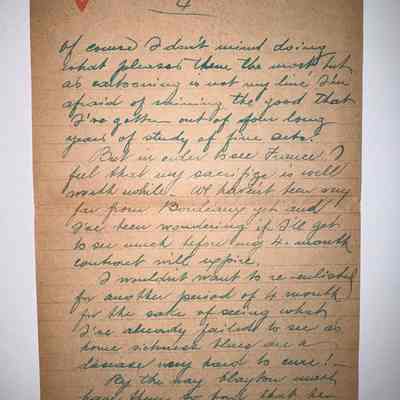 4
of course I don't mind doing
what pleases them the most but
as cartooning is not my line I'm
afraid of ruining the good that
I've gotten out of four long
years of study of fine arts.
But in order to see France I
feel that my sacrifize is well
worth while. We haven't been very
far from Bordeaux yet and
I've been wondering if I'll get
to see much before my 4-month
contract will expire.
I wouldn't want to re-enlist
for another period of 4 month
for the sake of seeing what
I've already failed to see as
home sickness blues are a
disease very hard to cure!
By the way Clayton must
have them so